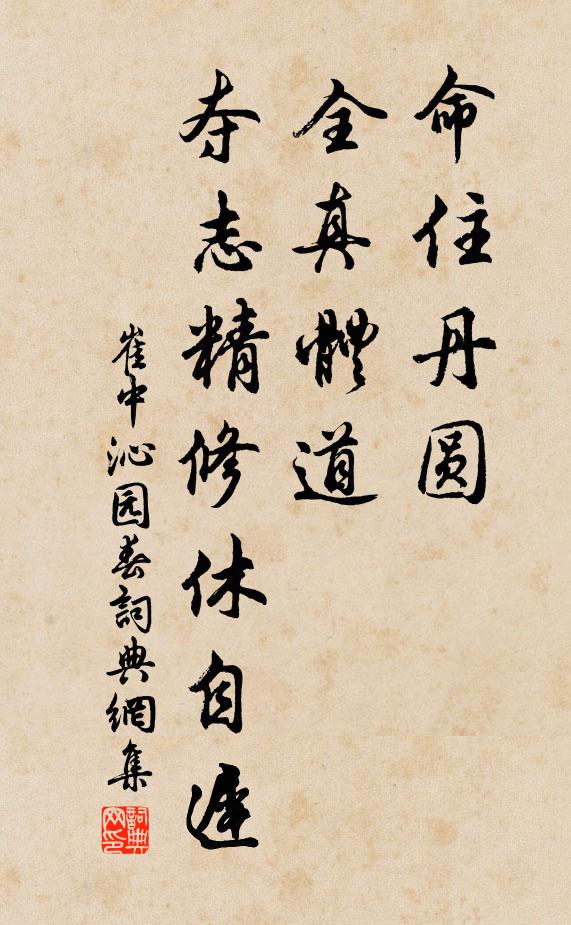 命住丹圆
全真體道
夺志精修休自遲
崔中沁园春詞典網集
詞典网印